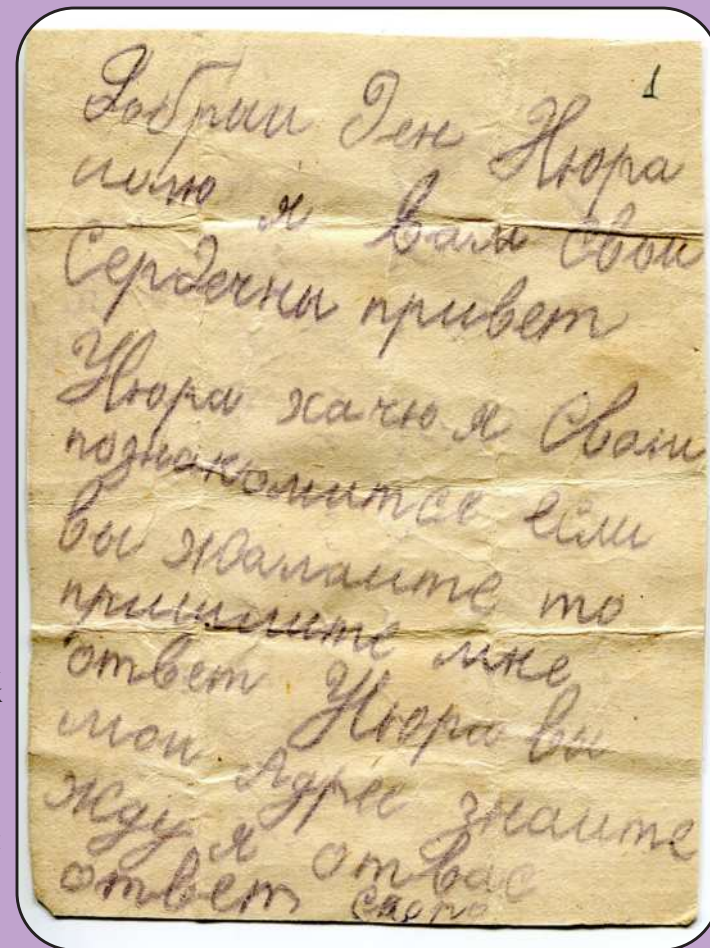 1
Добрии Ден Нюра
шлю я Вам Свои
Сердечны привет
Нюра хачю я Свами
познакомитсе если
вы жалаите то
пришлите мне
ответ Нюра вы
мои Адрес знаите
жду я отвас
ответ скоро